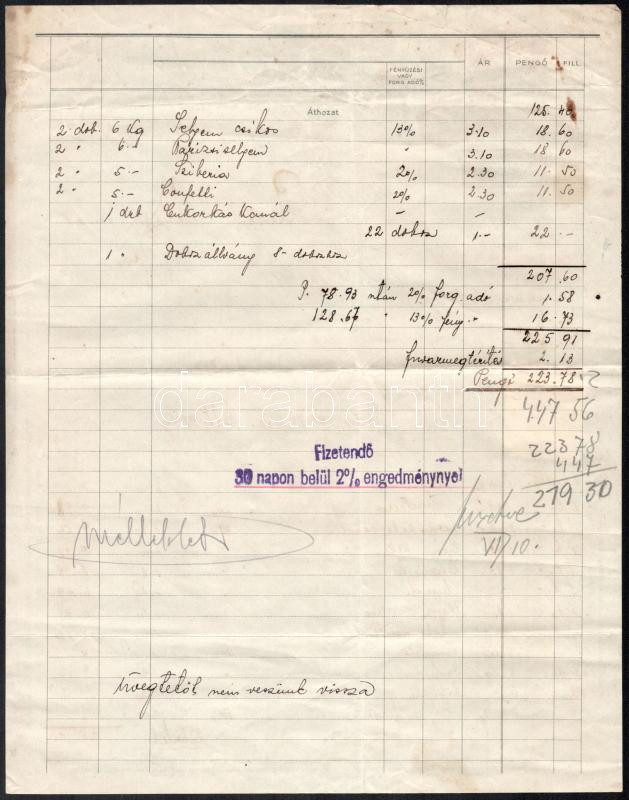 FÉNYŰZÉSI VAGY FORG. ADÓ % ÁR PENGŐ FILL.
Áthozat 125.40
2 dob. 6 Kg Selyem csikos 13% 3.10 18.60
2 " 6.- Párizsi selyem " 3.10 18 60
2 " 5.- Sziberia 2% 2.30 11.50
2 " 5.- Confetti 2% 2.30 11.50
1 drb Cukorkás kanál – –
22 doboz 1.– 22.–
1 " Doboz állvány 8- dobozhoz
207.60
P. 78.93 után 2% forg. adó 1.58
128.67 " 13% fény. " 16.73
225 91
fuvarmegtérítés 2.13
Pengő 223.78
447 56
darabanth
22378
447
219 30
Fizetendő
30 napon belül 2% engedménnyel
fizetve
VI/10.
Melléklet
Üvegtetőt nem veszünk vissza